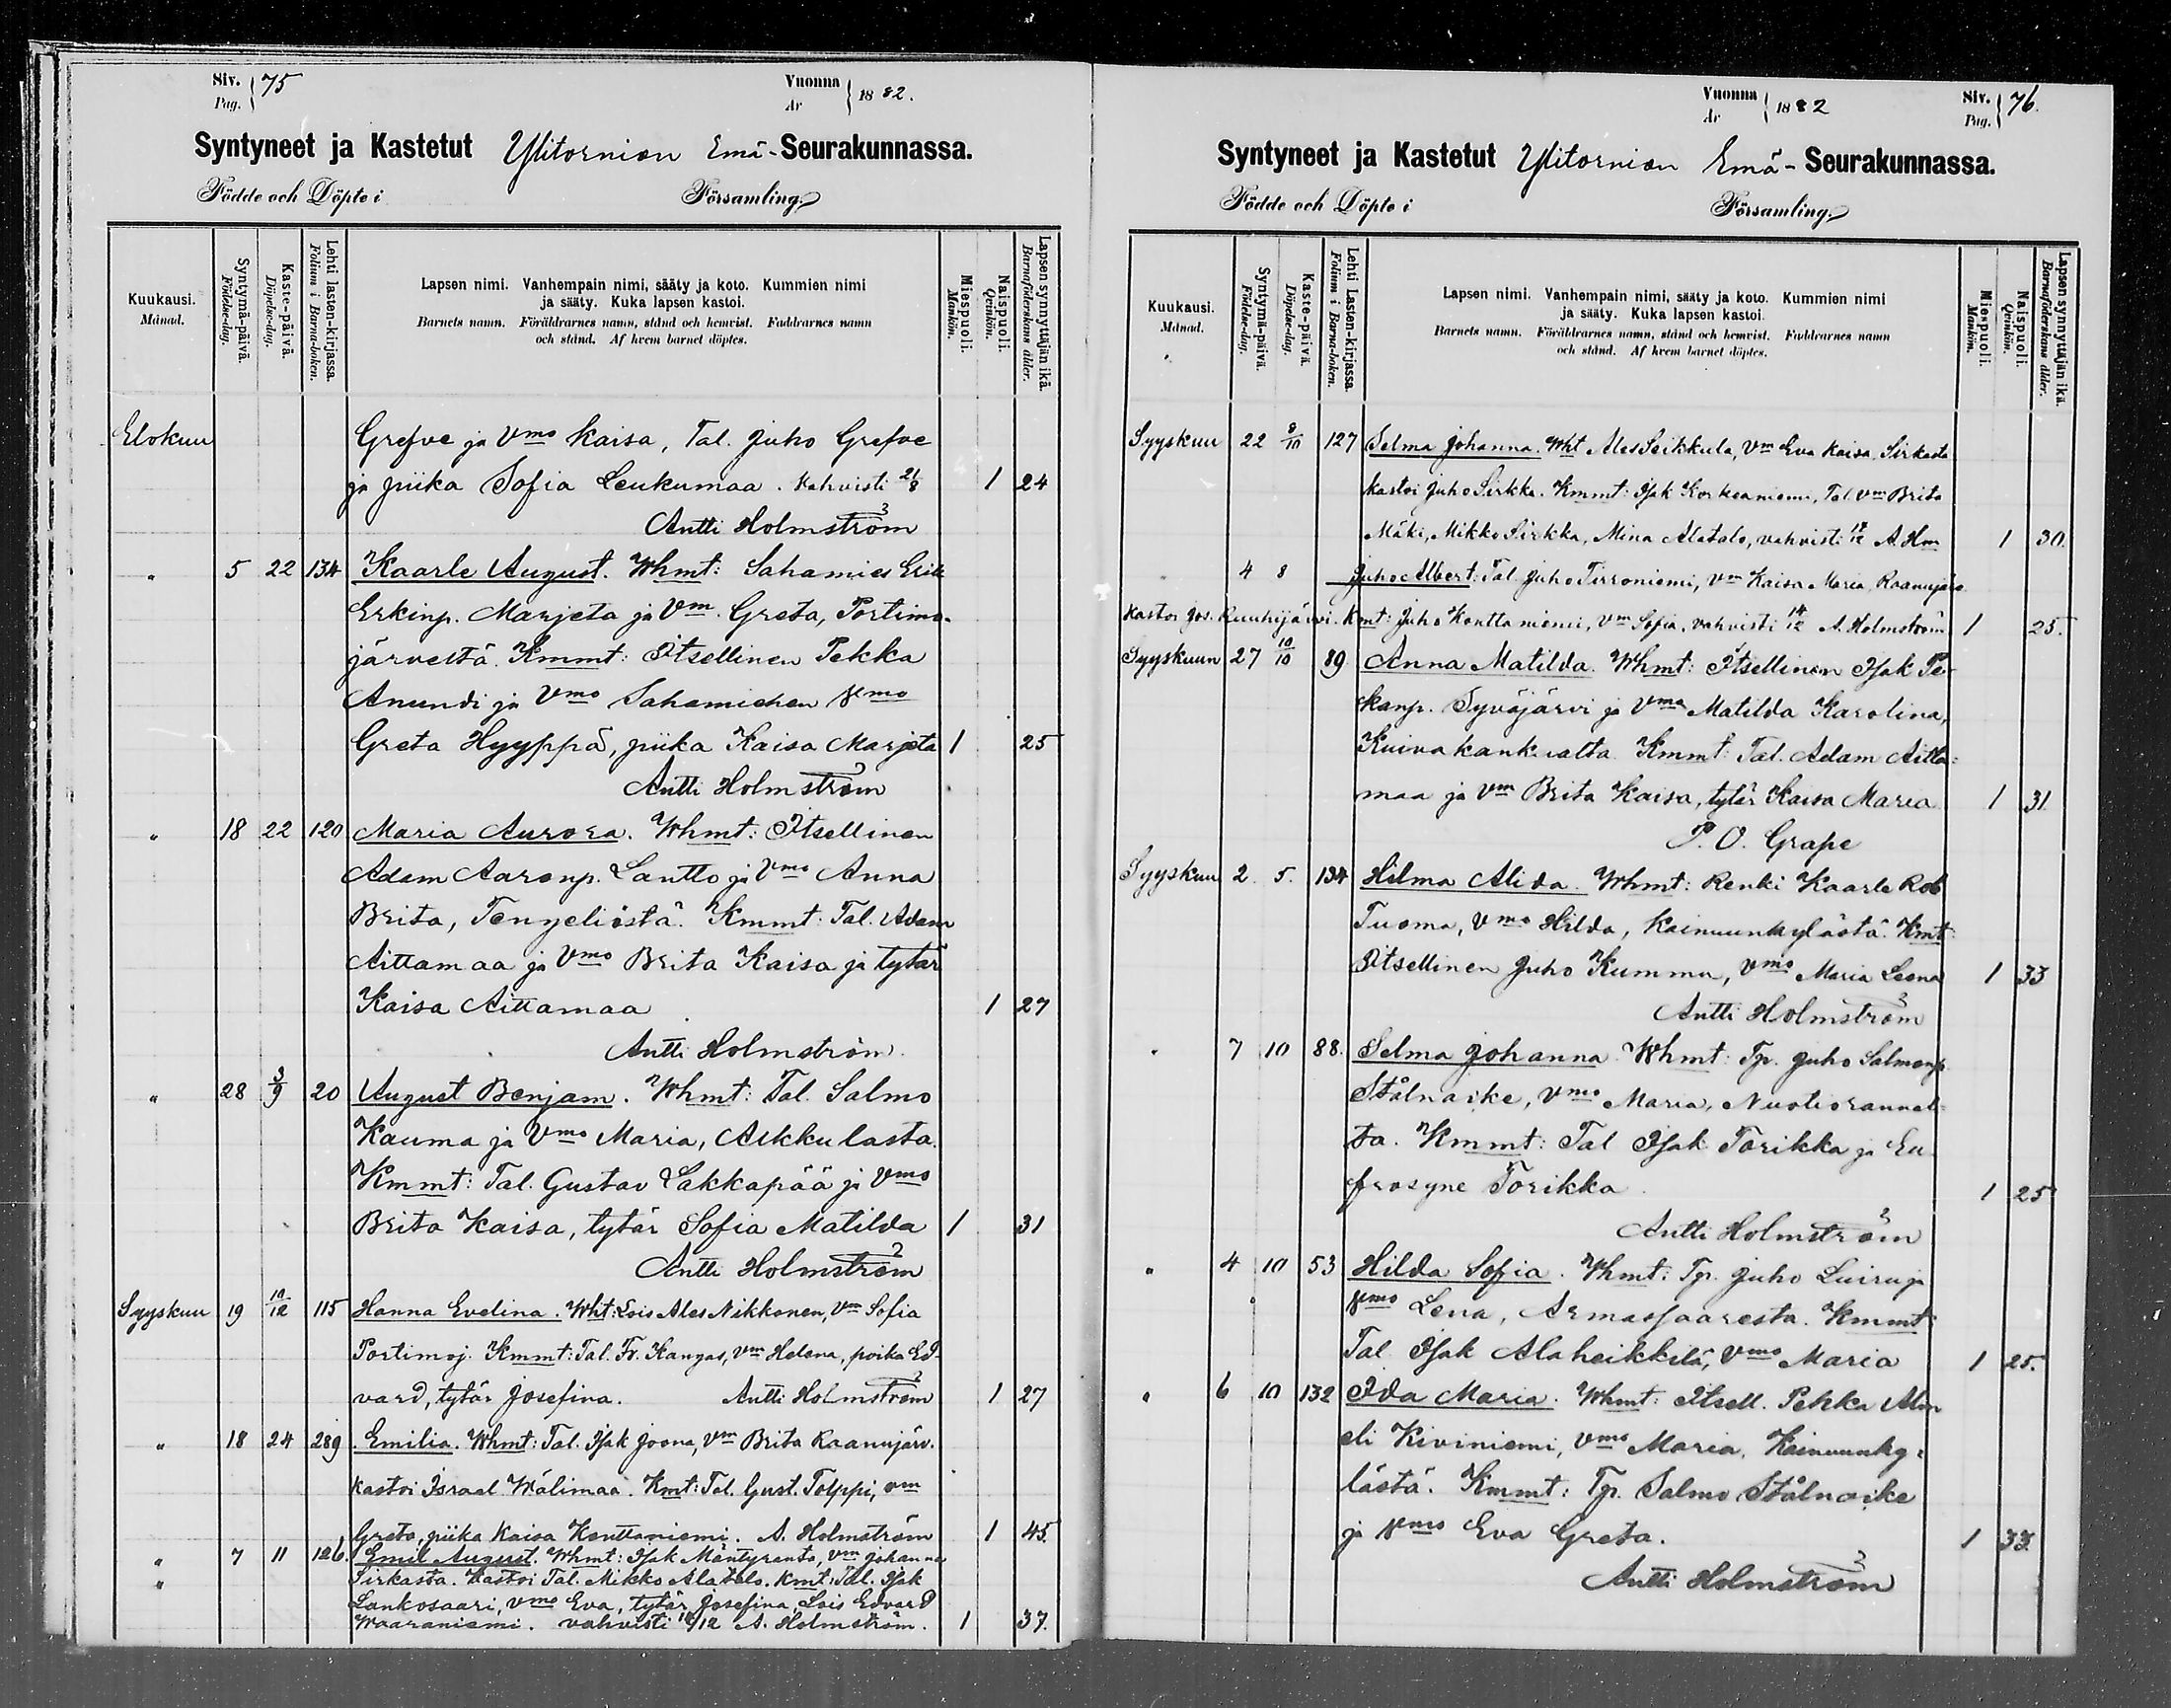 Siv. Pag. } 75
Vuonna År } 1882.
Syntyneet ja Kastetut Ylitornion Emä-Seurakunnassa.
Födde och Döpte i Församling.
Kuukausi. Månad.
Syntymä-päivä. Födelse-dag.
Kaste-päivä. Döpelse-dag.
Lehti lasten-kirjassa. Folium i Barna-boken.
Lapsen nimi. Vanhempain nimi, sääty ja koto. Kummien nimi
ja sääty. Kuka lapsen kastoi.
Barnets namn. Föräldrarnes namn, stånd och hemvist. Faddrarnes namn
och stånd. Af hvem barnet döptes.
Miespuoli. Mankön.
Naispuoli. Qvinkön.
Lapsen synnyttäjän ikä. Barnaföderskans ålder.
Elokuu Grefve ja Vmo Kaisa, Tal. Juho Grefve
ja piika Sofia Leukumaa. Kahvisti 21/8 1 24
Antti Holmström
" 5 22 134 Kaarle August. Whmt: Sahamies Erik
Erkinp. Marjeta ja Vm. Greta, Portimo-
järvestä. Kmmt: Itsellinen Pekka
Anundi ja Vmo Sahamiehen Vmo
Greta Hyyppä, piika Kaisa Marjeta 1 25
Antti Holmström
" 18 22 120 Maria Aurora. Whmt: Itsellinen
Adam Aaronp. Lantto ja Vmo Anna
Brita, Tengeliöstä. Kmmt: Tal. Adam
Aittamaa ja Vmo Brita Kaisa ja tytär
Kaisa Aittamaa 1 27
Antti Holmström.
" 28 3/9 20 August Benjam. Whmt: Tal. Salmo
Kauma ja Vmo Maria, Alkkulasta.
Kmmt: Tal. Gustav Lakkapää ja Vmo
Brita Kaisa, tytär Sofia Matilda 1 31
Antti Holmström
Syyskuu 19 10/12 115 Hanna Evelina. Wht: Lois Ales Nikkonen, Vm Sofia
Portimoj. Kmmt: Tal. Fr. Kangas, Vm Helena, poika Ed-
vard, tytär Josefina. Antti Holmström 1 27
" 18 24 289 Emilia. Whmt: Tal. Isak Joona, Vm Brita Raanujärv.
kastoi Israel Wälimaa. Kmt: Tal. Gust. Tolppi, vm
Greta, piika Kaisa Konttaniemi. A. Holmström 1 45.
" 7 11 126. Emil August. Whmt: Isak Mäntyranta, Vm Johanna
" Sirkasta. Kastoi Tal. Mikko Alatalo. Kmt: Tal. Isak
Lankosaari, Vmo Eva, tytär Josefina, Lois Edvard
Waaraniemi. vahvisti 10/12 A. Holmström. 1 37.
Vuonna År } 1882
Siv. Pag. } 76.
Syntyneet ja Kastetut Ylitornion Emä-Seurakunnassa.
Födde och Döpte i Församling.
Kuukausi. Månad.
Syntymä-päivä. Födelse-dag.
Kaste-päivä. Döpelse-dag.
Lehti Lasten-kirjassa. Folium i Barna-boken.
Lapsen nimi. Vanhempain nimi, sääty ja koto. Kummien nimi
ja sääty. Kuka lapsen kastoi.
Barnets namn. Föräldrarnes namn, stånd och hemvist. Faddrarnes namn
och stånd. Af hvem barnet döptes.
Miespuoli. Mankön.
Naispuoli. Qvinkön.
Lapsen synnyttäjän ikä. Barnaföderskans ålder.
Syyskuu 22 8/10 127 Selma Johanna. Wht Ales Seikkula, Vm Eva Kaisa, Sirkasta
kastoi Juho Sirkka. Kmmt: Isak Korkeaniemi, Tal. Vm Brita
Mäki, Mikko Sirkka, Mina Alatalo, vahvisti A. Hm 1 30.
4 8 Juho Albert: Tal. Juho Tirroniemi, Vm Kaisa Maria, Raanujärv.
kastoi Jos. Ruuhijärvi. Kmt: Juho Konttaniemi, Vm Sofia, vahvisti 14/12 A. Holmström 1 25.
Syyskuun 27 10/10 89 Anna Matilda. Whmt: Itsellinen Isak Pe-
kanp. Syväjärvi ja Vmo Matilda Karolina,
Kuivakank:alta. Kmmt: Tal. Adam Aitta:
maa ja Vm Brita Kaisa, tytär Kaisa Maria 1 31.
P. O. Grape
Syyskuu 2. 5. 134 Hilma Alida. Whmt: Renki Kaarle Rob
Tuoma, Vmo Hilda, Kainuunkylästä. Kmt:
Itsellinen Juho Kummu, Vmo Maria Leena 1 33
Antti Holmström
" 7 10 88. Selma Johanna. Whmt: Tp. Juho Salmonp.
Stålnacke, Vmo Maria, Nuotiorannal-
ta. Kmmt: Tal Isak Torikka ja Eu
frosyne Torikka. 1 25
Antti Holmström
" 4 10 53 Hilda Sofia. Whmt: Tp. Juho Luiru ja
Vmo Lena, Armassaaresta. Kmmt:
Tal. Isak Alaheikkilä, Vmo Maria 1 25.
" 6 10 132 Ida Maria. Whmt: Itsell. Pekka Abra
eli Kiviniemi, Vmo Maria, Kainuunky:
lästä. Kmmt: Tp. Salmo Stålnacke
ja Vmo Eva Greta. 1 33.
Antti Holmström